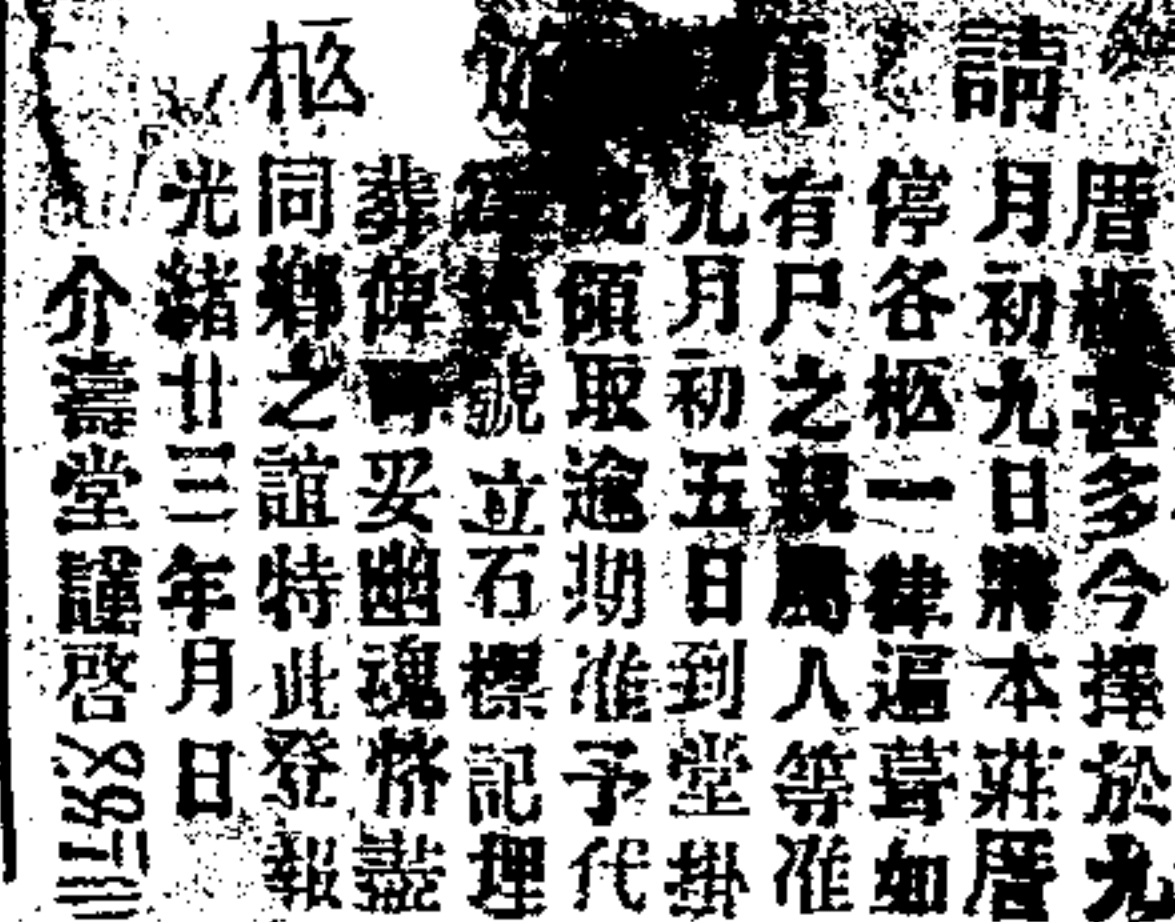 請領柩
厝柩甚多今擇於九
月初九日將本莊厝
停各柩一律遷葬如
有尸之親屬人等准
九月初五日到堂掛
領取逾期准予代
號立石標記埋
葬俾妥幽魂盡
同鄉之誼特此登報
光緒廿三年月日
介壽堂謹啓